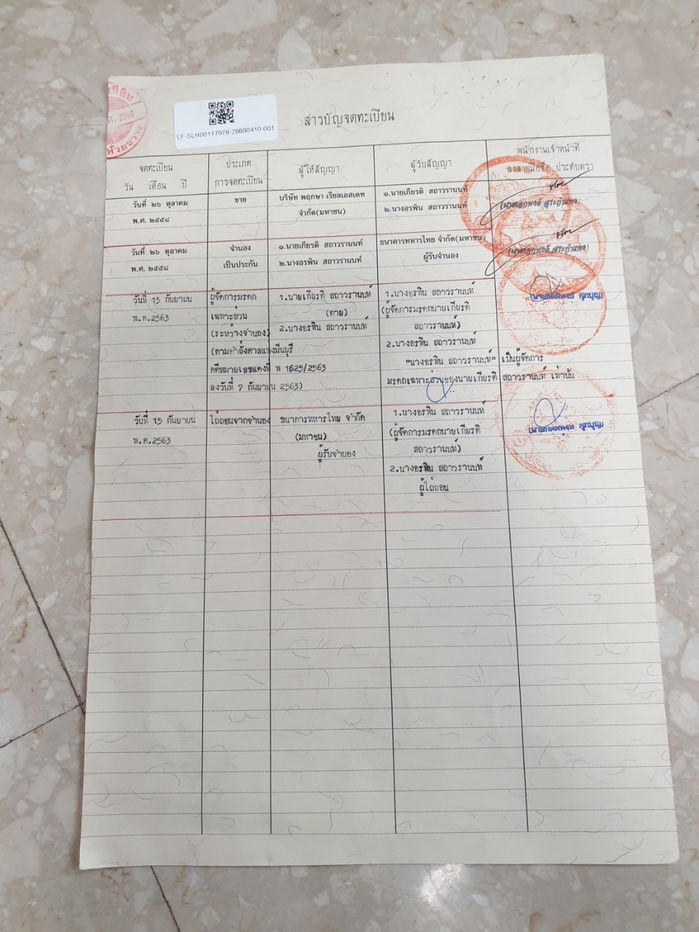 2558
LF-SLH00117978-28600410-001
สารบัญจดทะเบียน
จดทะเบียน
วัน เดือน ปี
ประเภท
การจดทะเบียน
ผู้ให้สัญญา
ผู้รับสัญญา
พนักงานเจ้าหน้าที่
ลงลายมือชื่อ ประทับตรา
วันที่ ๒๖ ตุลาคม
พ.ศ. ๒๕๕๘
ขาย
บริษัท พฤกษา เรียลเอสเตท
จำกัด(มหาชน)
๑.นายเกียรติ สถาวรานนท์
๒.นางอรพิน สถาวรานนท์
วันที่ ๒๖ ตุลาคม
พ.ศ. ๒๕๕๘
จำนอง
เป็นประกัน
๑.นายเกียรติ สถาวรานนท์
๒.นางอรพิน สถาวรานนท์
ธนาคารทหารไทย จำกัด(มหาชน)
ผู้รับจำนอง
วันที่ 15 กันยายน
พ.ศ.2563
ผู้จัดการมรดก
เฉพาะส่วน
(ระหว่างจำนอง)
(ตามคำสั่งศาลแพ่งมีนบุรี
คดีหมายเลขแดงที่ พ 1625/2563
ลงวันที่ 7 กันยายน 2563)
1.นายเกียรติ สถาวรานนท์
(ตาย)
2.นางอรพิน สถาวรานนท์
1.นางอรพิน สถาวรานนท์
(ผู้จัดการมรดกนายเกียรติ
สถาวรานนท์)
2.นางอรพิน สถาวรานนท์
"นางอรพิน สถาวรานนท์" เป็นผู้จัดการ
มรดกเฉพาะส่วนของนายเกียรติ สถาวรานนท์ เท่านั้น
วันที่ 15 กันยายน
พ.ศ.2563
ไถ่ถอนจากจำนอง
ธนาคารทหารไทย จำกัด
(มหาชน)
ผู้รับจำนอง
1.นางอรพิน สถาวรานนท์
(ผู้จัดการมรดกนายเกียรติ
สถาวรานนท์)
2.นางอรพิน สถาวรานนท์
ผู้ไถ่ถอน